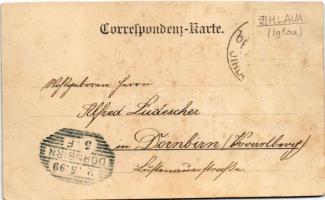 Correspondenz-Karte.
JIHLAVA
(Iglau)
Wohlgeboren Herrn
Alfred Ludescher
in Dornbirn (Vorarlberg)
Lustenauerstraße.
DORNBIRN
2.5.99
5.F